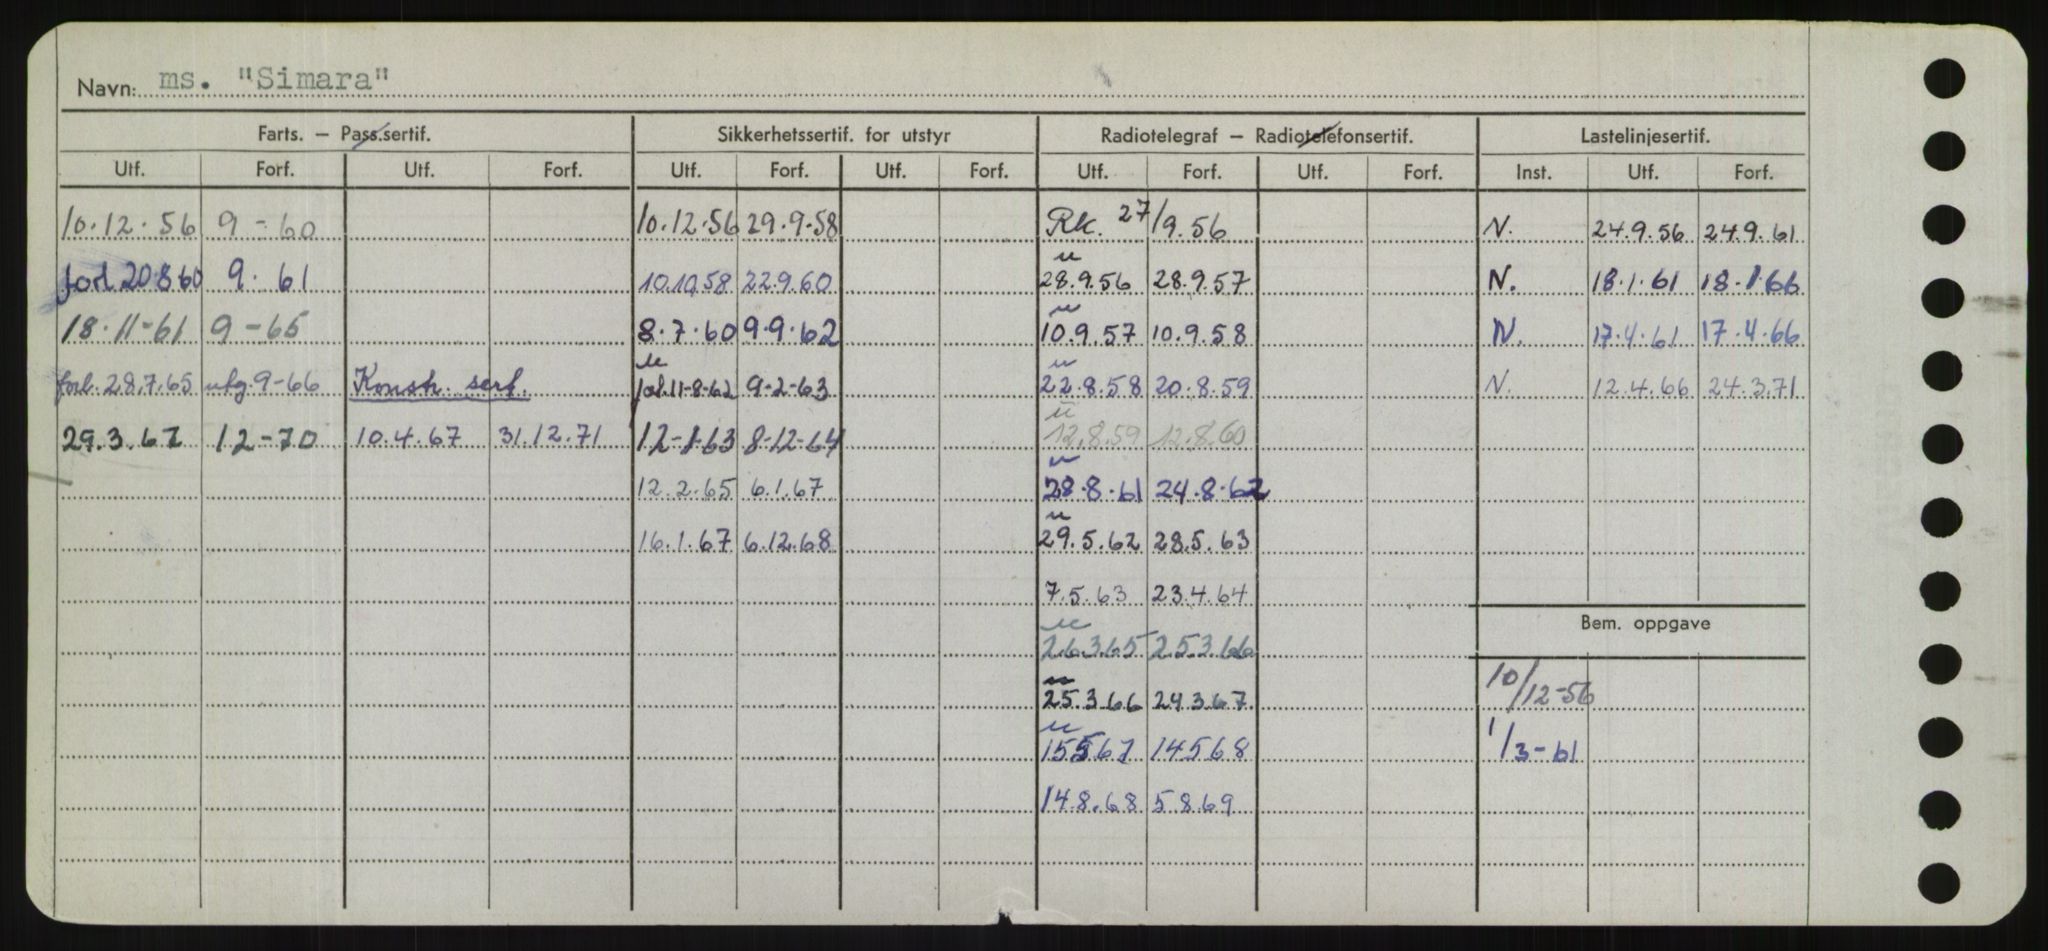 Navn: ms. "Simara"
Farts. — Pass.sertif. Sikkerhetssertif. for utstyr Radiotelegraf — Radiotelefonsertif. Lastelinjesertif.
Utf. Forf. Utf. Forf. Utf. Forf. Utf. Forf. Utf. Forf. Utf. Forf. Inst. Utf. Forf.
10.12.56 9-60 10.12.56 29.9.58 RK. 27/9.56 N. 24.9.56 24.9.61
forl. 20.8.60 9.61 10.10.58 22.9.60 u 28.9.56 28.9.57 N. 18.1.61 18.1.66
18.11-61 9-65 8.7.60 9.9.62 u 10.9.57 10.9.58 N. 17.4.61 17.4.66
forl. 28.7.65 utg. 9-66 Konstr. sert. u forl. 11-8-62 9-2-63 u 22.8.58 20.8.59 N. 12.4.66 24.3.71
29.3.67 12-70 10.4.67 31.12.71 12-1-63 8-12-64 u 12.8.59 12.8.60
12.2.65 6.1.67 u 28.8.61 24.8.62
16.1.67 6.12.68 u 29.5.62 28.5.63
7.5.63 23.4.64
Bem. oppgave
u 26.3.65 25.3.66
u 25.3.66 24.3.67 10/12-56
u 15.5.67 14.5.68 1/3-61
14.8.68 5.8.69